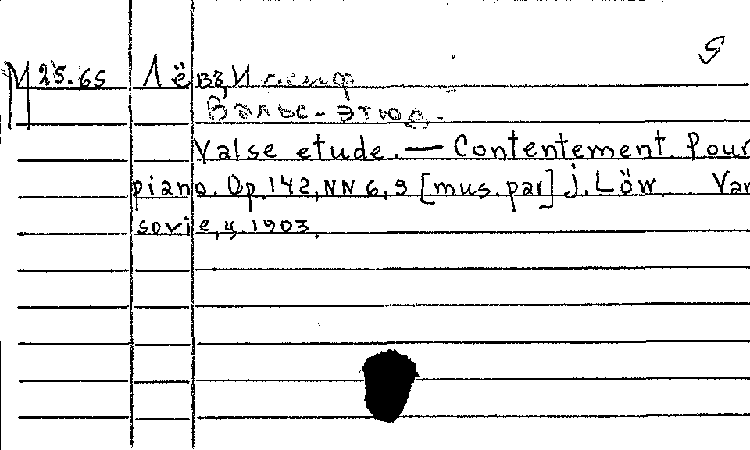 М 25.65 Лёв, Иосиф
Вальс-этюд.
Valse etude. — Contentement. Pour
piano. Op. 142, NN 6, 9 [mus. par] J. Löw. Var
sovie, 1903.